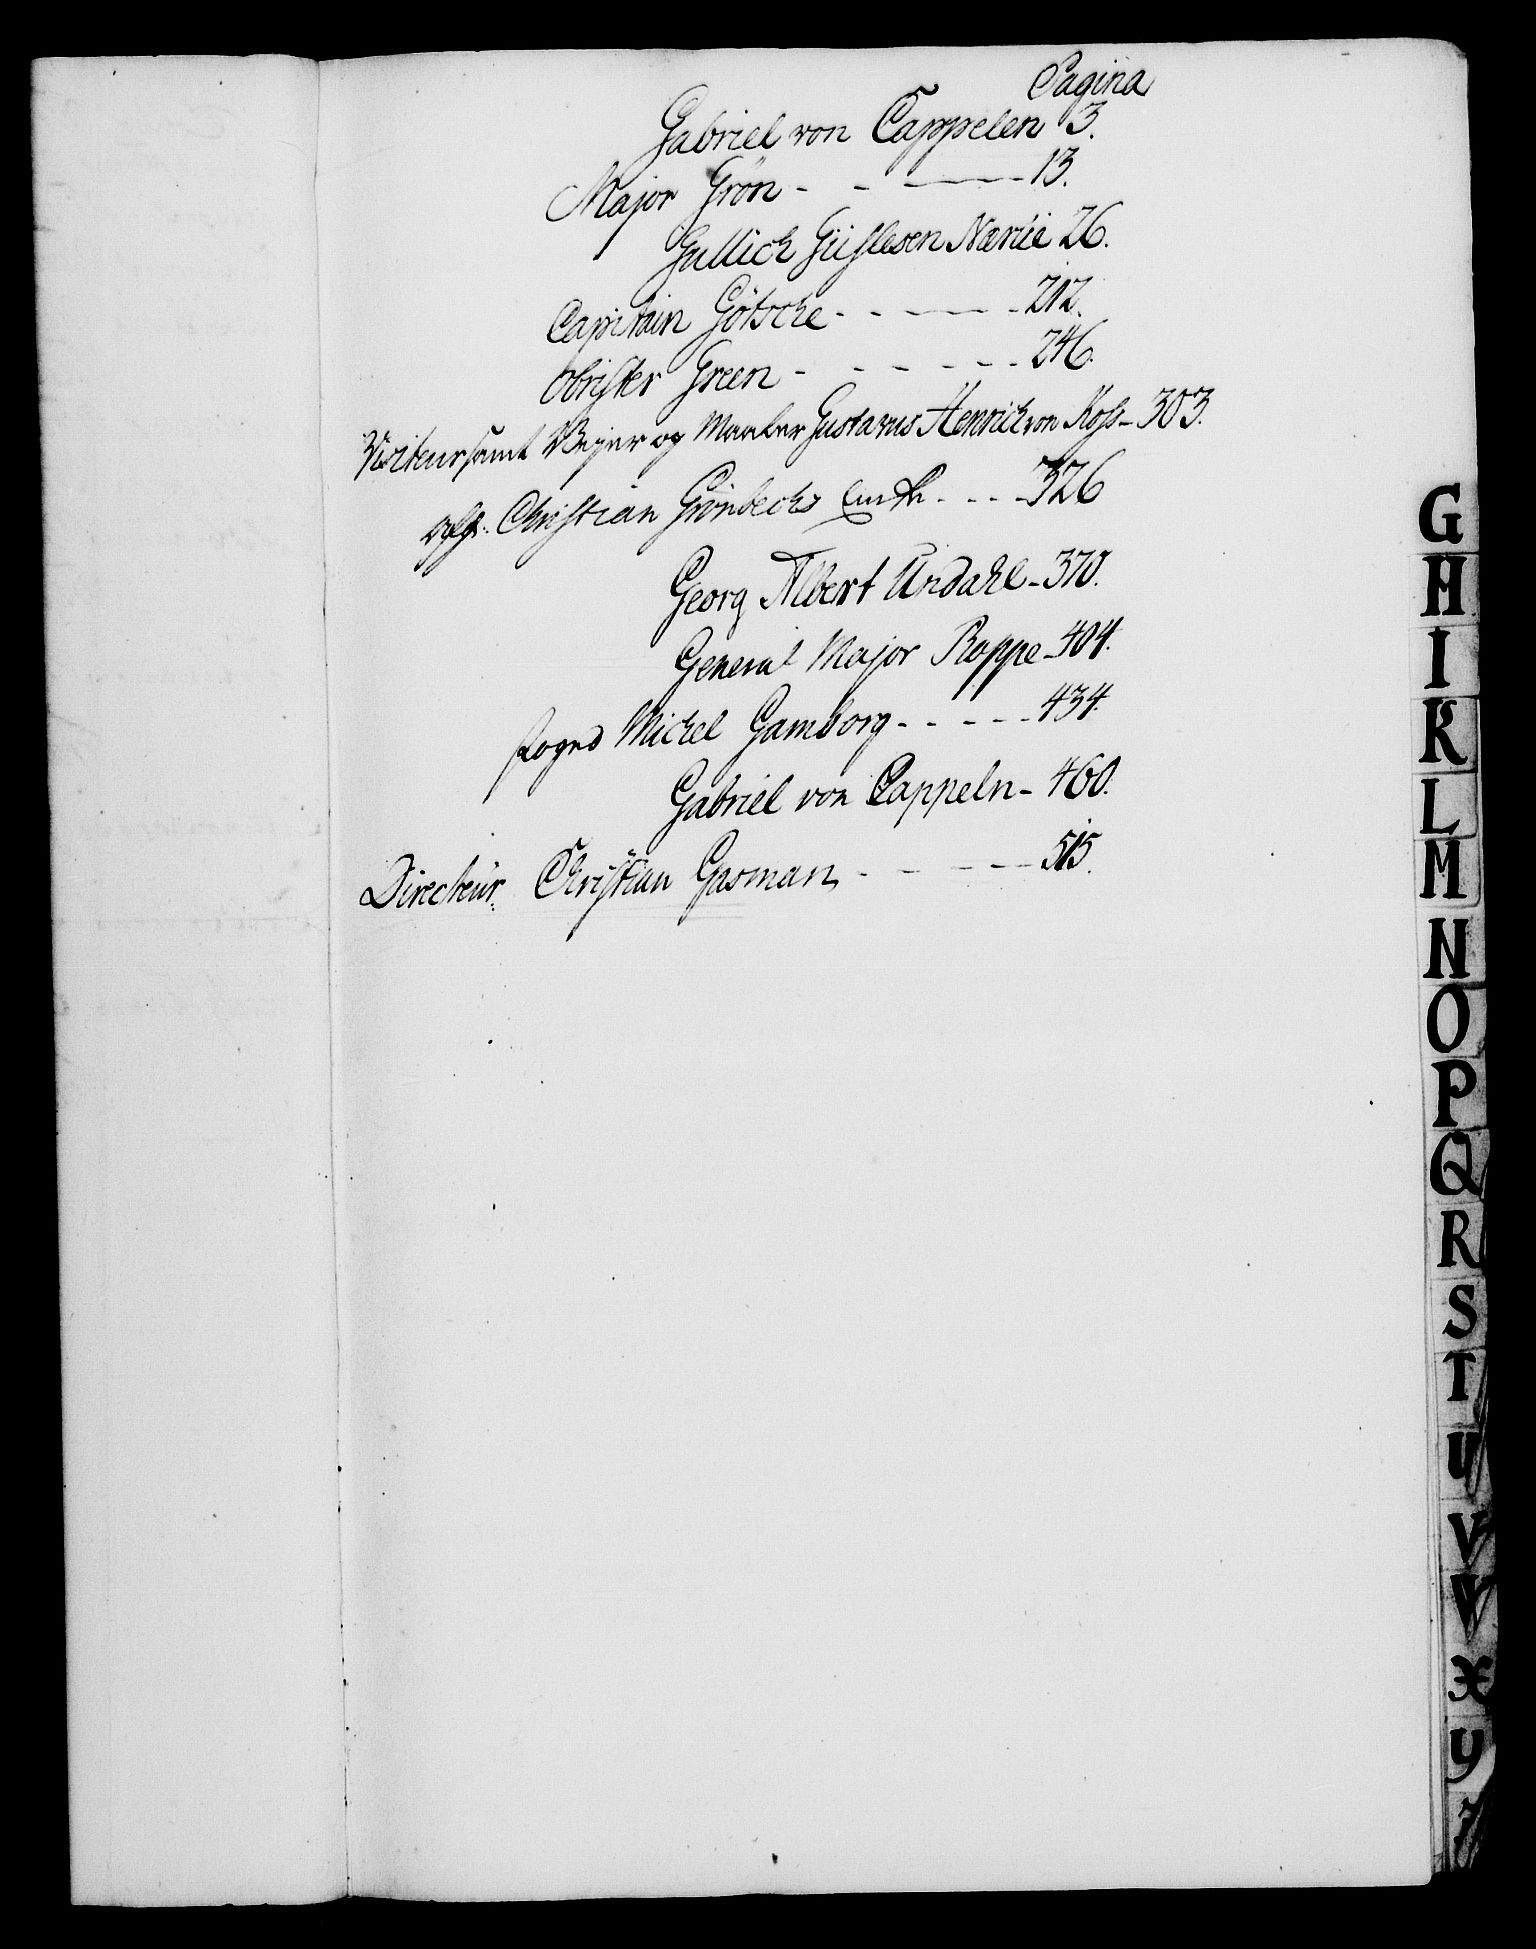 Pagina
Gabriel von Cappelen 3.
Major Grön - - - 13.
Gullich Gislesen Nærüe 26.
Capitain Götsche - - - - 212.
Obrister Green - - - - - - 246.
Visiteur samt Vejer og Maaler Gustavus Henrich von Koss - 303.
Christian Grönbechs - - - 326
Georg Albert Undahl - 370.
General Major Rappe - 404.
foged Michel Gamborg - - - - - 434.
Gabriel von Cappeln - 460.
Directeur Christian Gasman - - - - 515.
G
H
I
K
L
M
N
O
P
Q
R
S
T
U
V
W
X
Y
Z